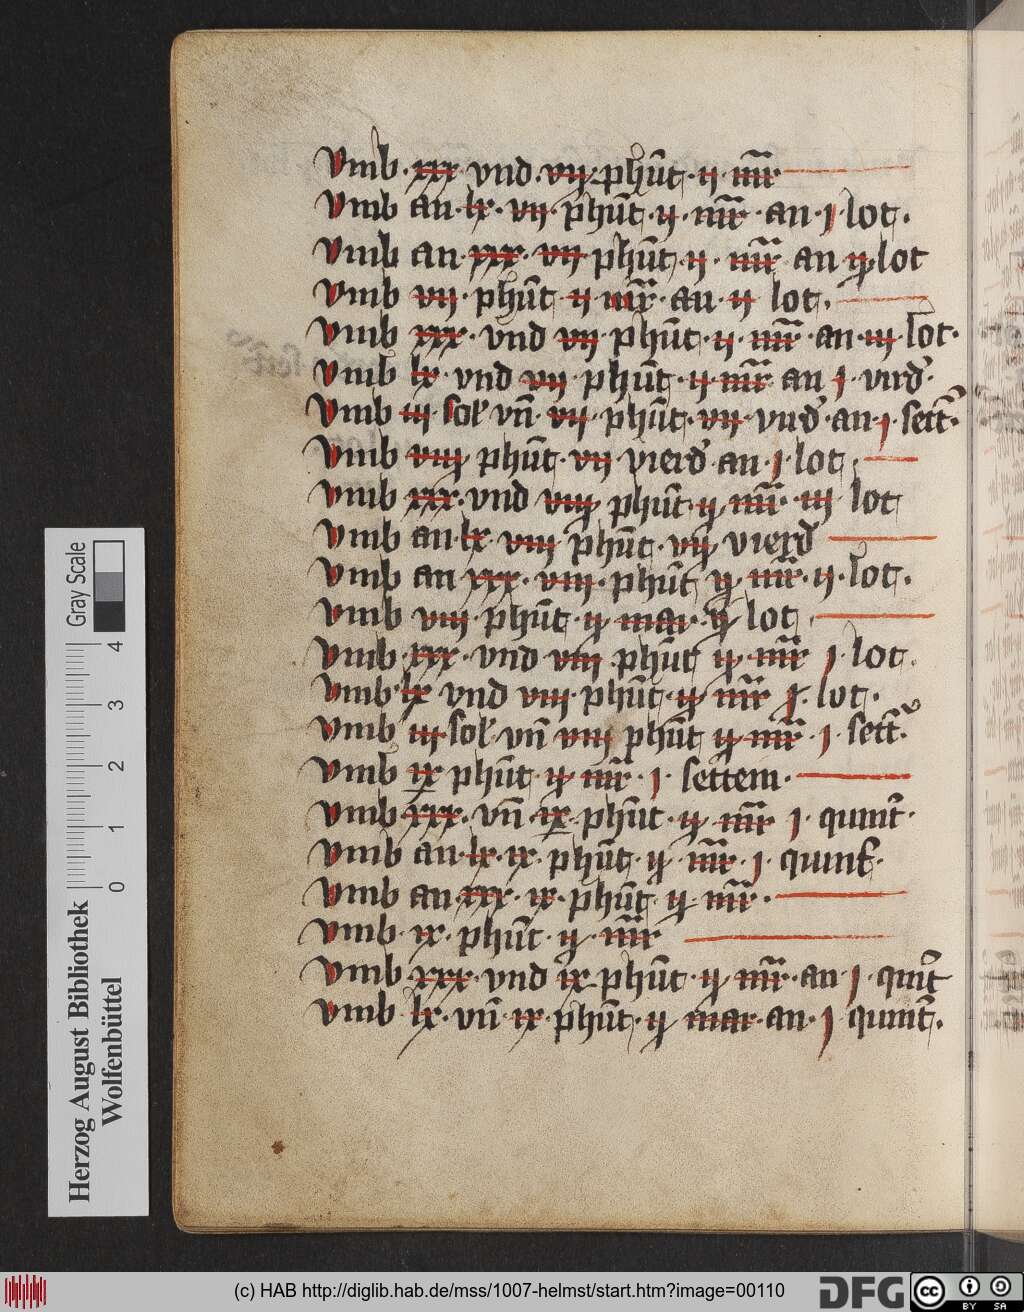 vmb · xxx · vnd · vij · phūt · ij · mr̄
vmb an · lx · vij · phūt · ij · mr̄ · an · j · lot ·
vmb an · xxx · vij phūt · ij · mr̄ an ꝯ lot
vmb vij · phūt · ij mr̄ · an · ij lot ·
vmb xxx · vnd vij phūt · ij · mr̄ · an · iij · lot ·
vmb lx · vnd vij · phūt · ij · mr̄ an j · vird̕ ·
vmb iij sol̕ vn̄ · vij · phūt · vij · vird̕ · an · j · sett̄ ·
vmb phūt · vij vierd̕ an · j · lot ·
vmb xxx · vnd phūt · mr̄ · iij lot
vmb an · lx · viij phūt · vierd
vmb an xxx · viij · phūt mr̄ · ij · lot ·
vmb viij · phūt · mar · lot
vmb · xxx · vnd viij · phūt mr̄ j · lot ·
vmb lx vnd viij · phūt · mr̄ lot ·
vmb iij · sol̕ · vn̄ viij phūt mr̄ · j · sett̄ ·
vmb ix phūt · mr̄ · j · settem ·
vmb xxx · vn̄ · ix · phūt · mr̄ j · quint̄ ·
vmb an · lx · ix · phūt · mr̄ · j · quint ·
vmb an · xxx · ix · phūt · mr̄ ·
vmb · ix · phūt · mr̄
vmb · xxx · vnd ix phūt · mr̄ · an · j · quīt
vmb lx · vn̄ · ix · phūt · mar · an · j · quint̄ ·
Gray Scale
0 1 2 3 4
Herzog August Bibliothek
Wolfenbüttel
(c) HAB http://diglib.hab.de/mss/1007-helmst/start.htm?image=00110
DFG
cc BY SA